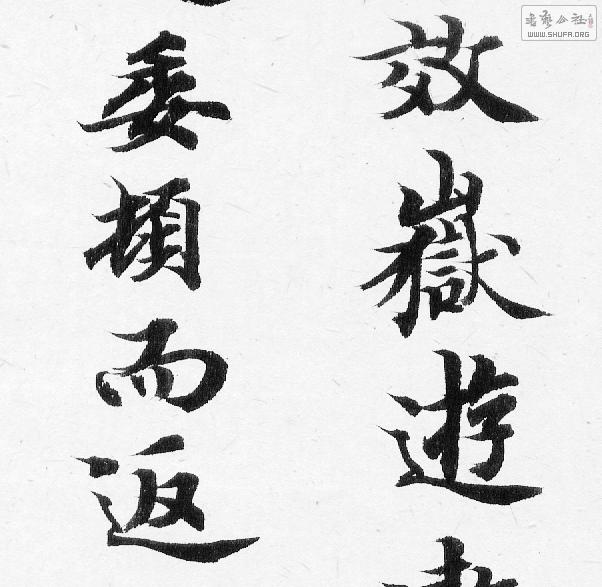 效嶽遊
委頓而返
書藝公社
WWW.SHUFA.ORG